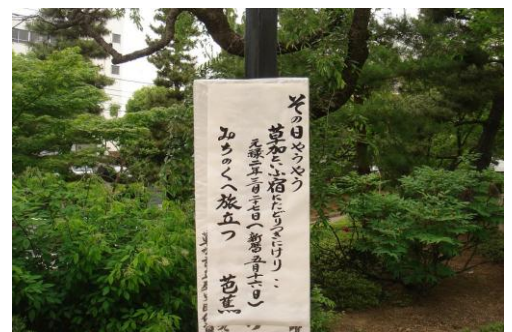 その日やうやう
草加といふ宿にたどりつきにけり‥
元禄二年三月二十七日(新暦五月十六日)
みちのくへ旅立つ 芭蕉